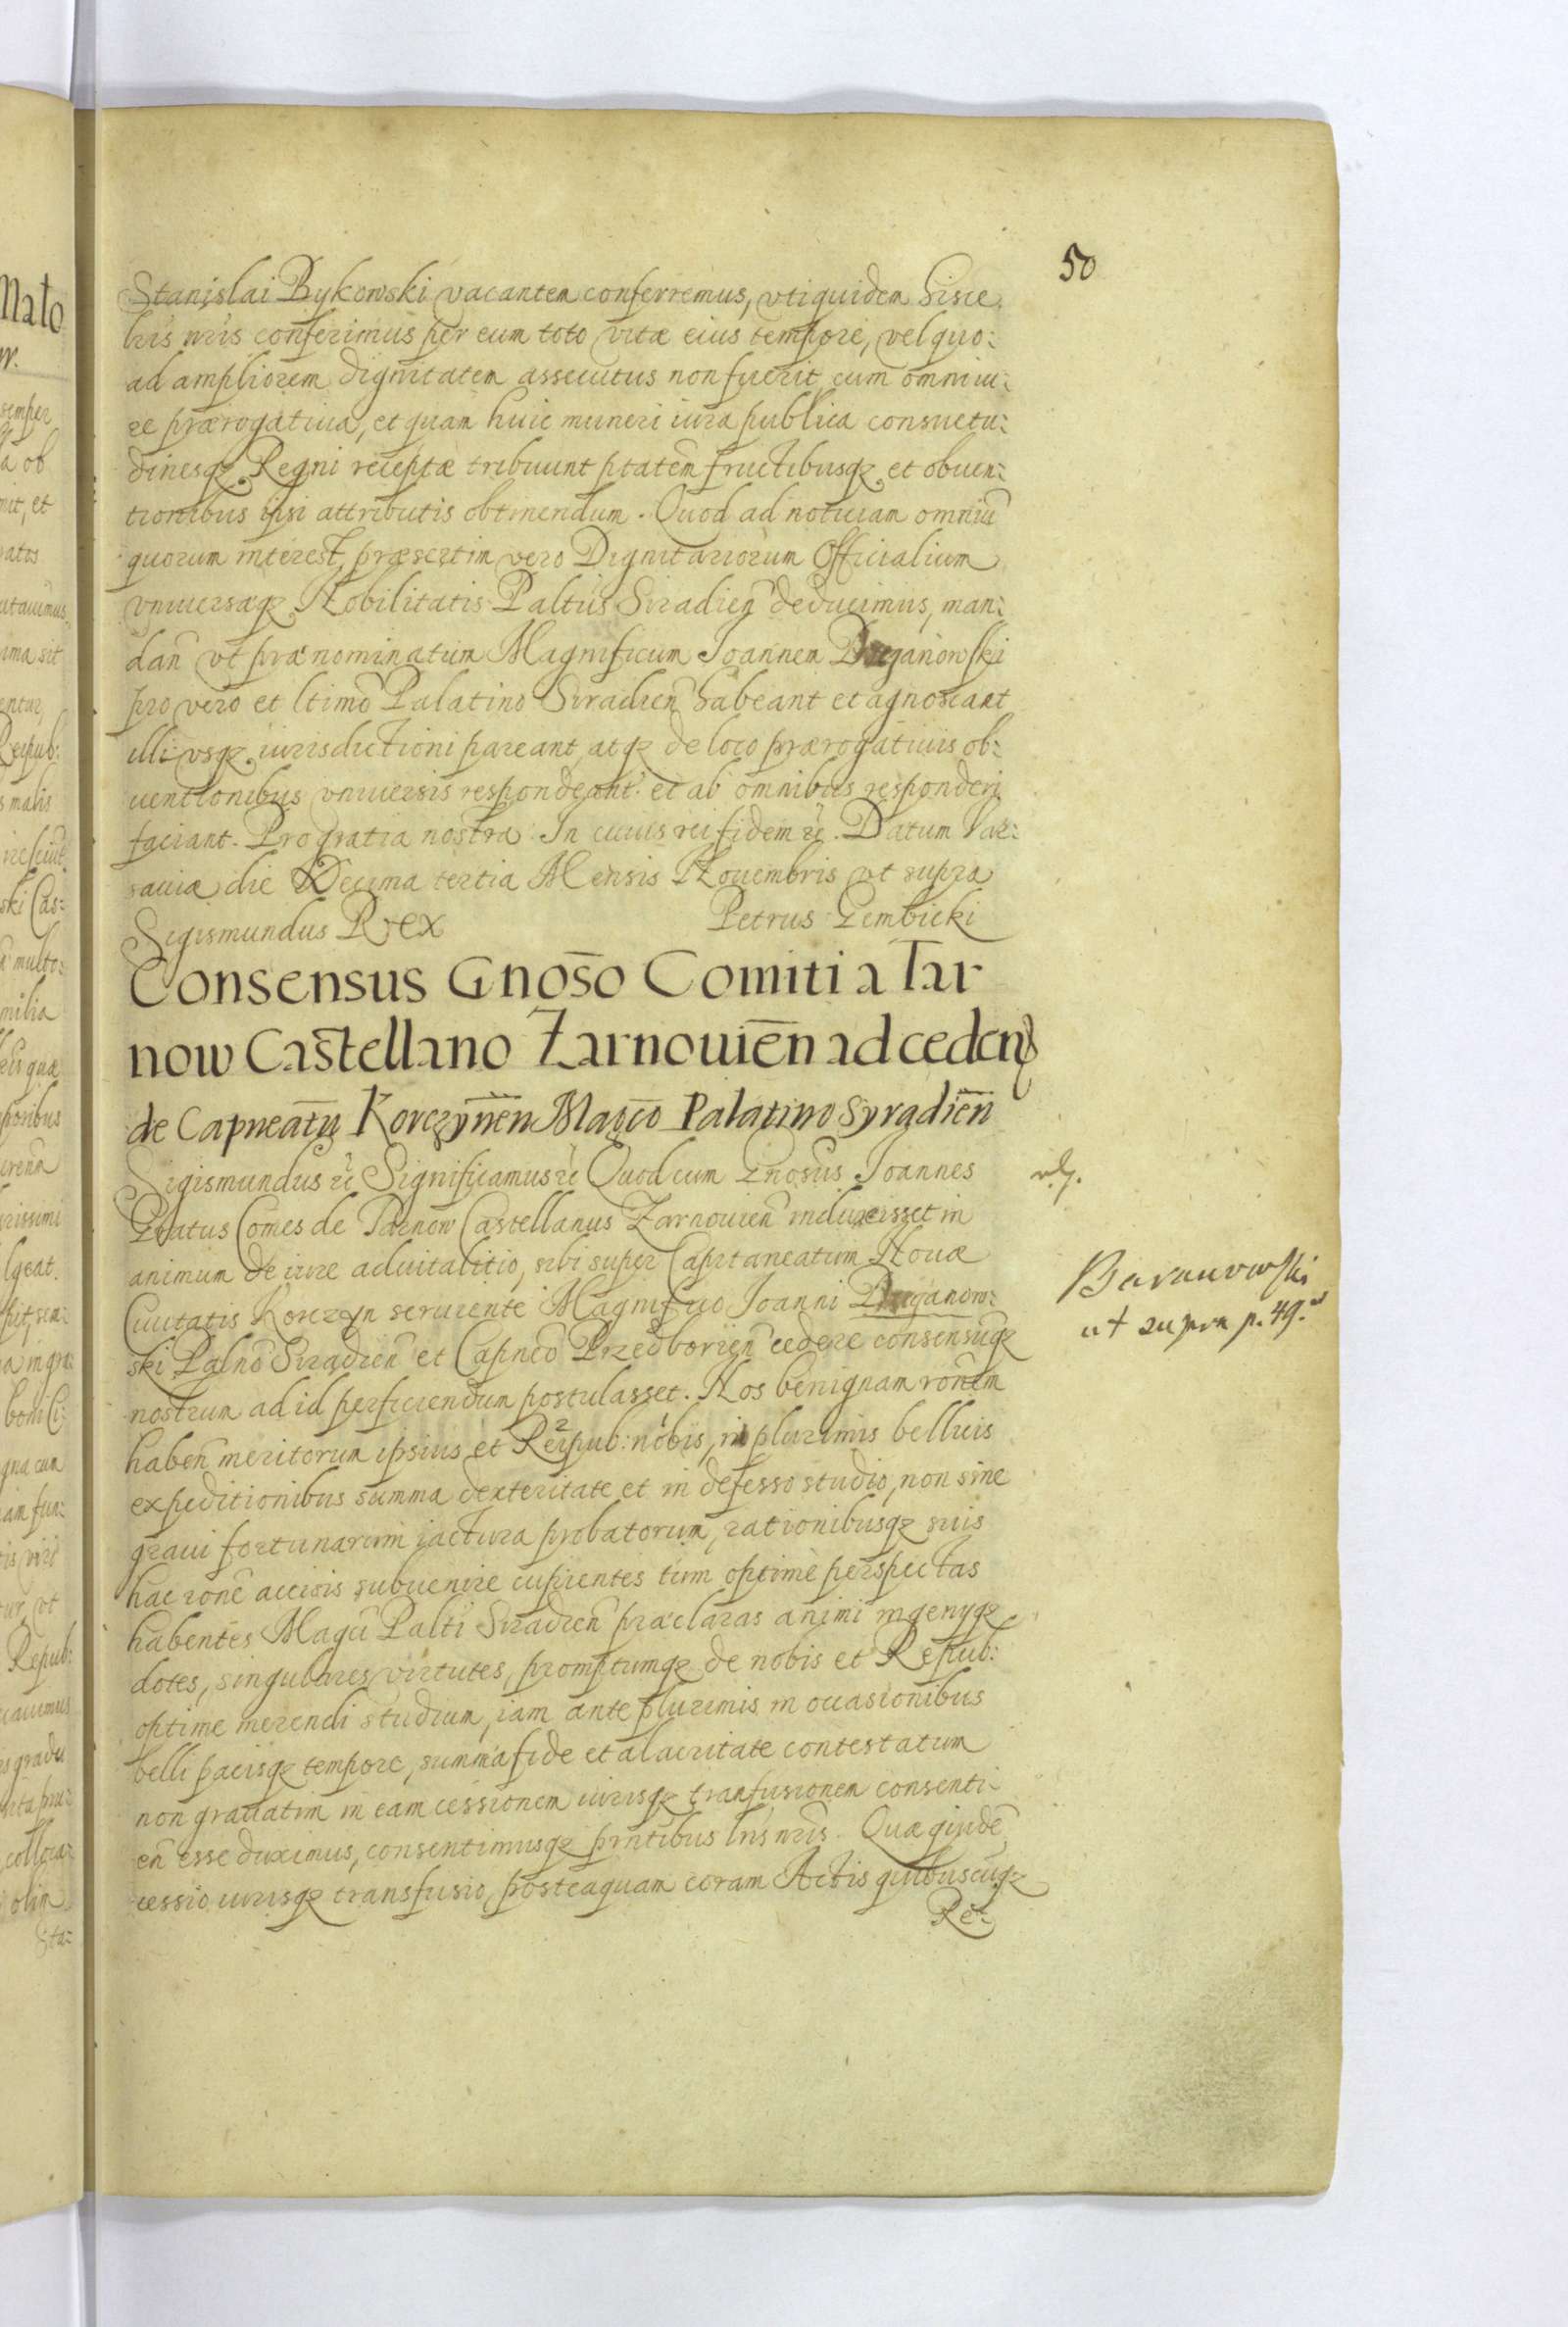 50
Stanislai Bykowski vacantem conferremus, vtiquidem hisce
lris nris conferimus per eum toto vitæ eius tempore, vel quo:
ad ampliorem dignitatem assecutus non fuerit cum omni iu:
re prærogatiua, et quam huic muneri iura publica consuetu:
dinesqz Regni receptæ tribuunt ptatem fructibusqz et obuen:
tionibus ipsi attributis obtinendum. Quod ad notitiam omniũ
quorum interest, præsertim vero Dignitariorum Officialium
vniuersæqz Nobilitatis Paltus Siradien̄ deducimus, man:
dan̄ vt prænominatum Magnificum Joannem ganowski
pro vero et ltimo Palatino Siradien̄ habeant et agnoscant
illiusqz iurisdictioni pareant, atqz de loco prærogatiuis ob:
uentionibus vniuersis respondeant et ab omnibus responderi
faciant. Pro gratia nostra. In cuius rei fidem &c. Datum Var:
sauiæ die Decima tertia Mensis Nouembris vt supra
Sigismundus Rex Petrus Gembicki
Consensus Gnoso Comiti a Tar
now Castellano Zarnouien̄ ad cedend
de Capneatu Korczynen̄ Magco Palatino Syradien̄
Sigismundus &c Significamus &c Quod cum Gnosus Joannes
Gratus Comes de Tarnow Castellanus Zarnouien̄ induxisset in
animum de iure aduitalitio, sibi super Capitaneatum Nouæ
Ciuitatis Korczyn seruiente Magnifico Joanni ganow:
ski Palno Siradien̄ et Capneo Przedborien̄ cedere consensuqz
nostrum ad id perficiendum postulasset. Nos benignam ronem
haben̄ meritorum ipsius et Reipub: nobis, in plurimis bellicis
expeditionibus summa dexteritate et indefesso studio, non sine
graui fortunarum iactura probatorum, rationibusqz suis
hac rone accisis subuenire cupientes tum optime perspectas
habentes Magci Palti Siradien̄ præclaras animi ingenyqz
dotes, singulares virtutes, promptumqz de nobis et Repub:
optime merendi studium, iam ante plurimis in occasionibus
belli pacisqz tempore, summa fide et alacritate contestatum
non grauatim in eam cessionem iurisqz transfusionem consenti:
en̄ esse duximus, consentimusqz prntibus lris nris. Quæ quidē
cessio iurisqz transfusio, posteaquam coram Actis quibuscũqz
Re:
Baranowski
ut supra p. 49.